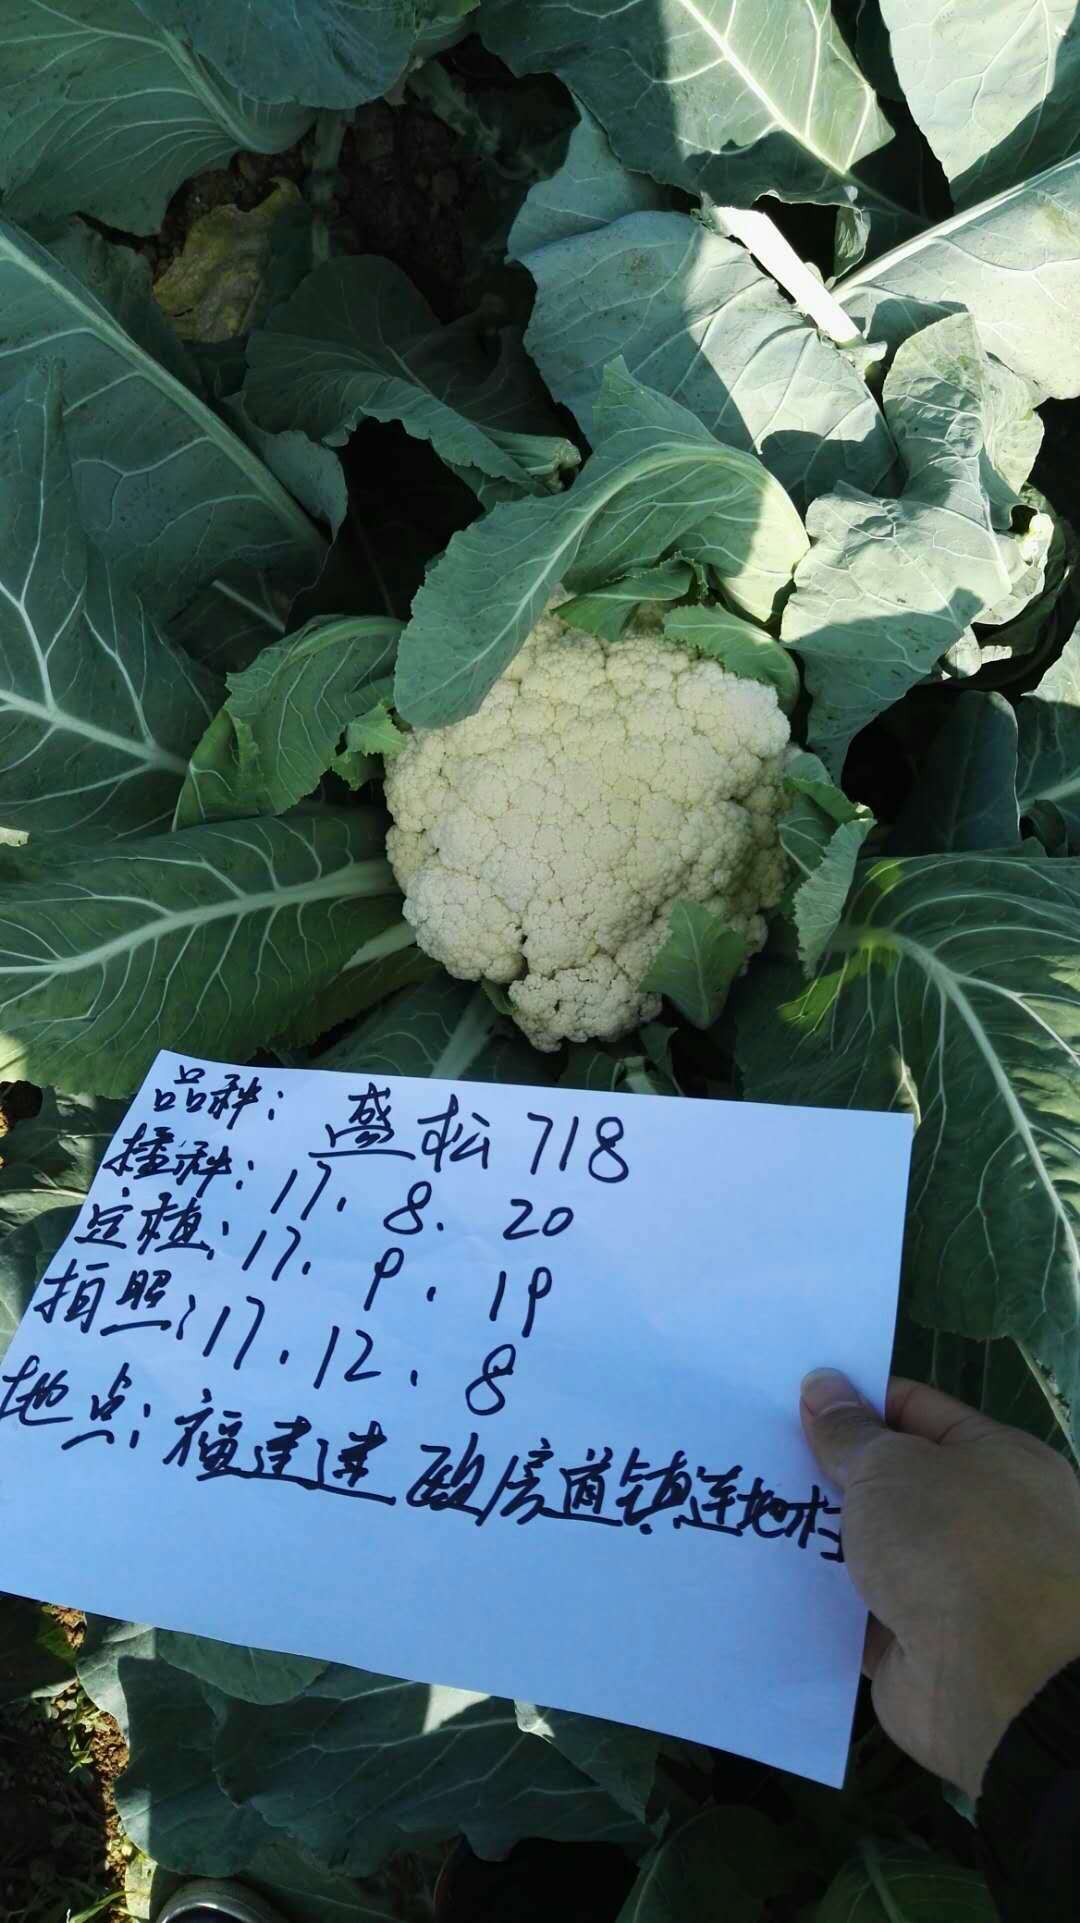 品种: 盛松718
播种: 17. 8. 20
定植: 17. 9. 19
拍照: 17. 12. 8
地点: 福建建瓯房道镇连地村